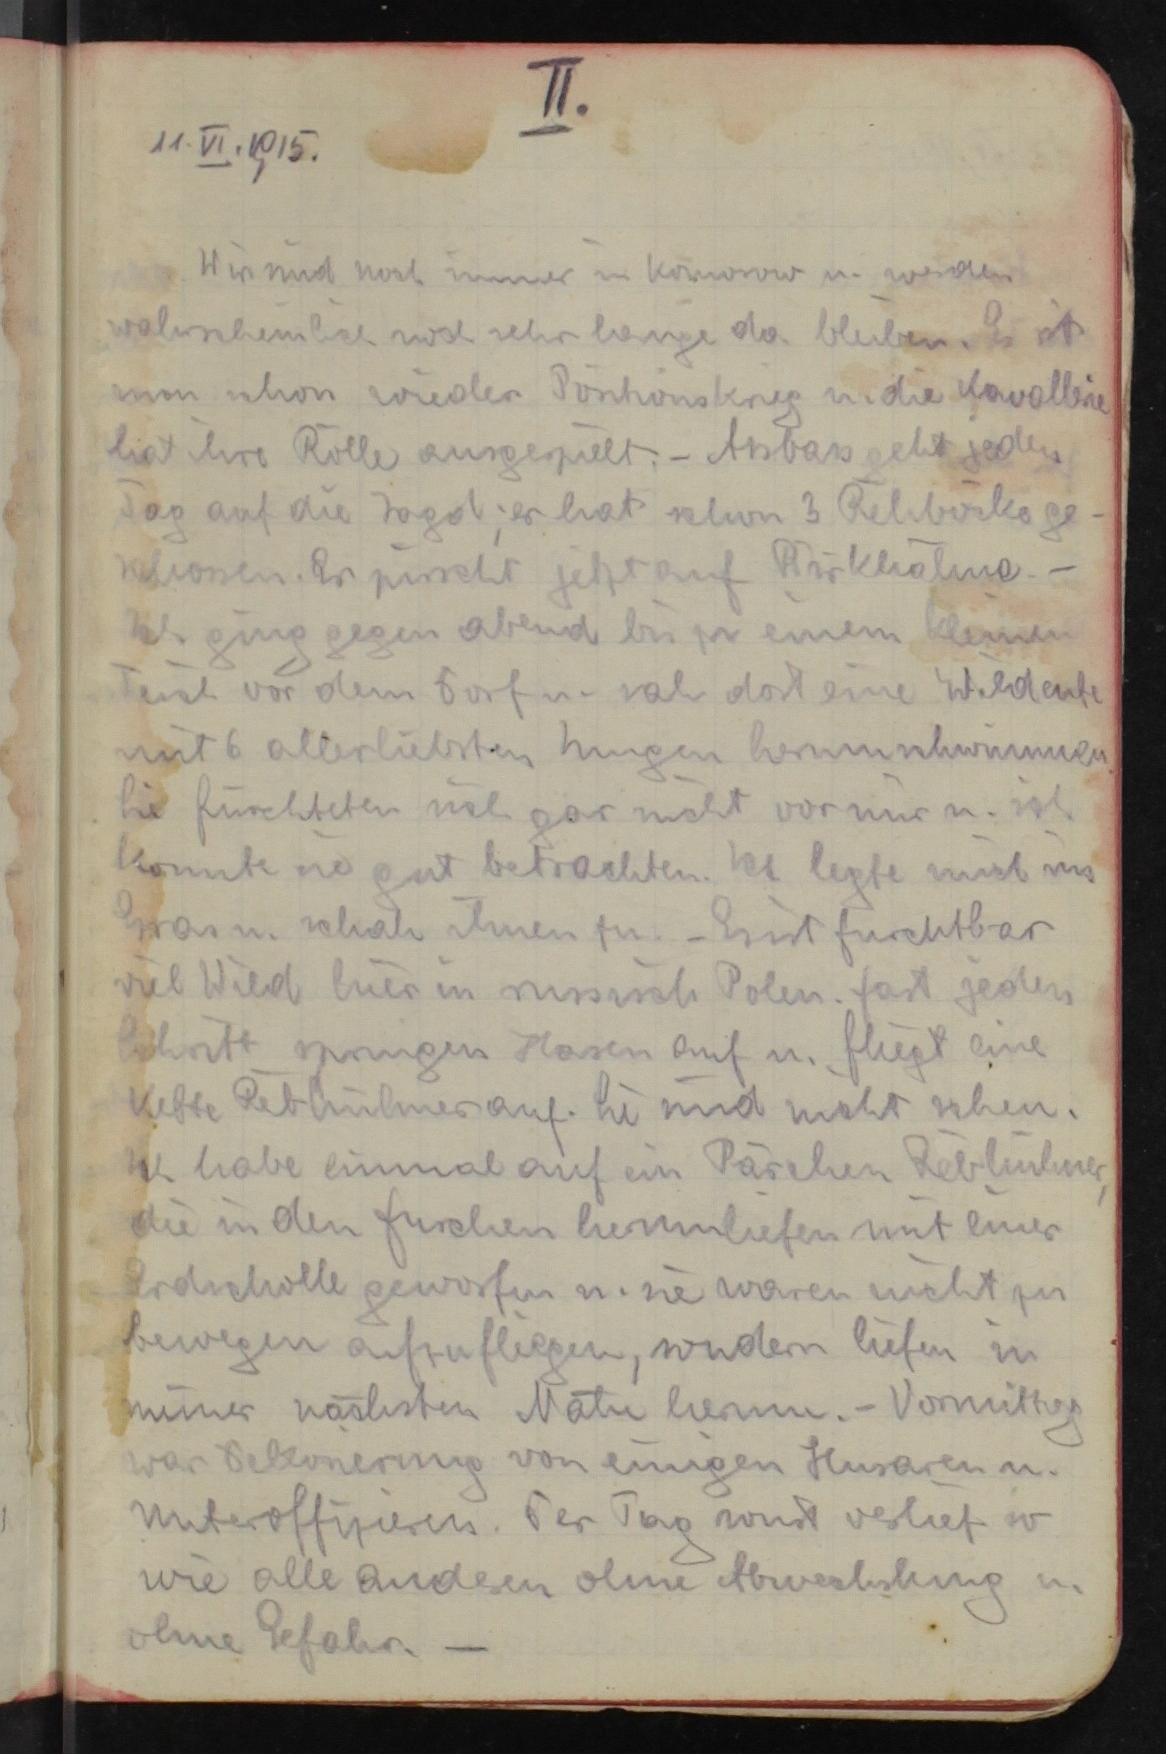 II.
11. VI. 1915.
Wir sind noch immer in Komorow u. werden
wahrscheinlich noch sehr lange da bleiben. Es ist
nun schon wieder Positionskrieg u. die Kavallerie
hat ihre Rolle ausgespielt. - geht jeden
Tag auf die Jagd; er hat schon 3 Rehböcke ge-
schossen. Er pirscht jetzt auf Birkhähne. -
Ich ging gegen abend bis zu einem kleinen
Teich vor dem Dorf u. sah dort eine Wildente
mit 6 allerliebsten Jungen herumschwimmen.
Sie fürchteten sich gar nicht vor mir u. ich
konnte sie gut betrachten. Ich legte mich ins
Gras u. schah ihnen zu. - Es ist furchtbar
viel Wild hier in russisch Polen. fast jeden
Schritt springen Hasen auf u. fliegt eine
Kette Rebhühner auf. Sie sind nicht scheu.
Ich habe einmal auf ein Pärchen Rebhühner,
die in den Furchen herumliefen mit einer
Erdscholle geworfen u. sie waren nicht zu
bewegen aufzufliegen, sondern liefen in
meiner nächsten Nähe herum. - Vormittag
war Dekorierung von einigen Husaren u.
Unteroffizieren. Der Tag sonst verlief so
wie alle anderen ohne Abwechslung u.
ohne Gefahr. —